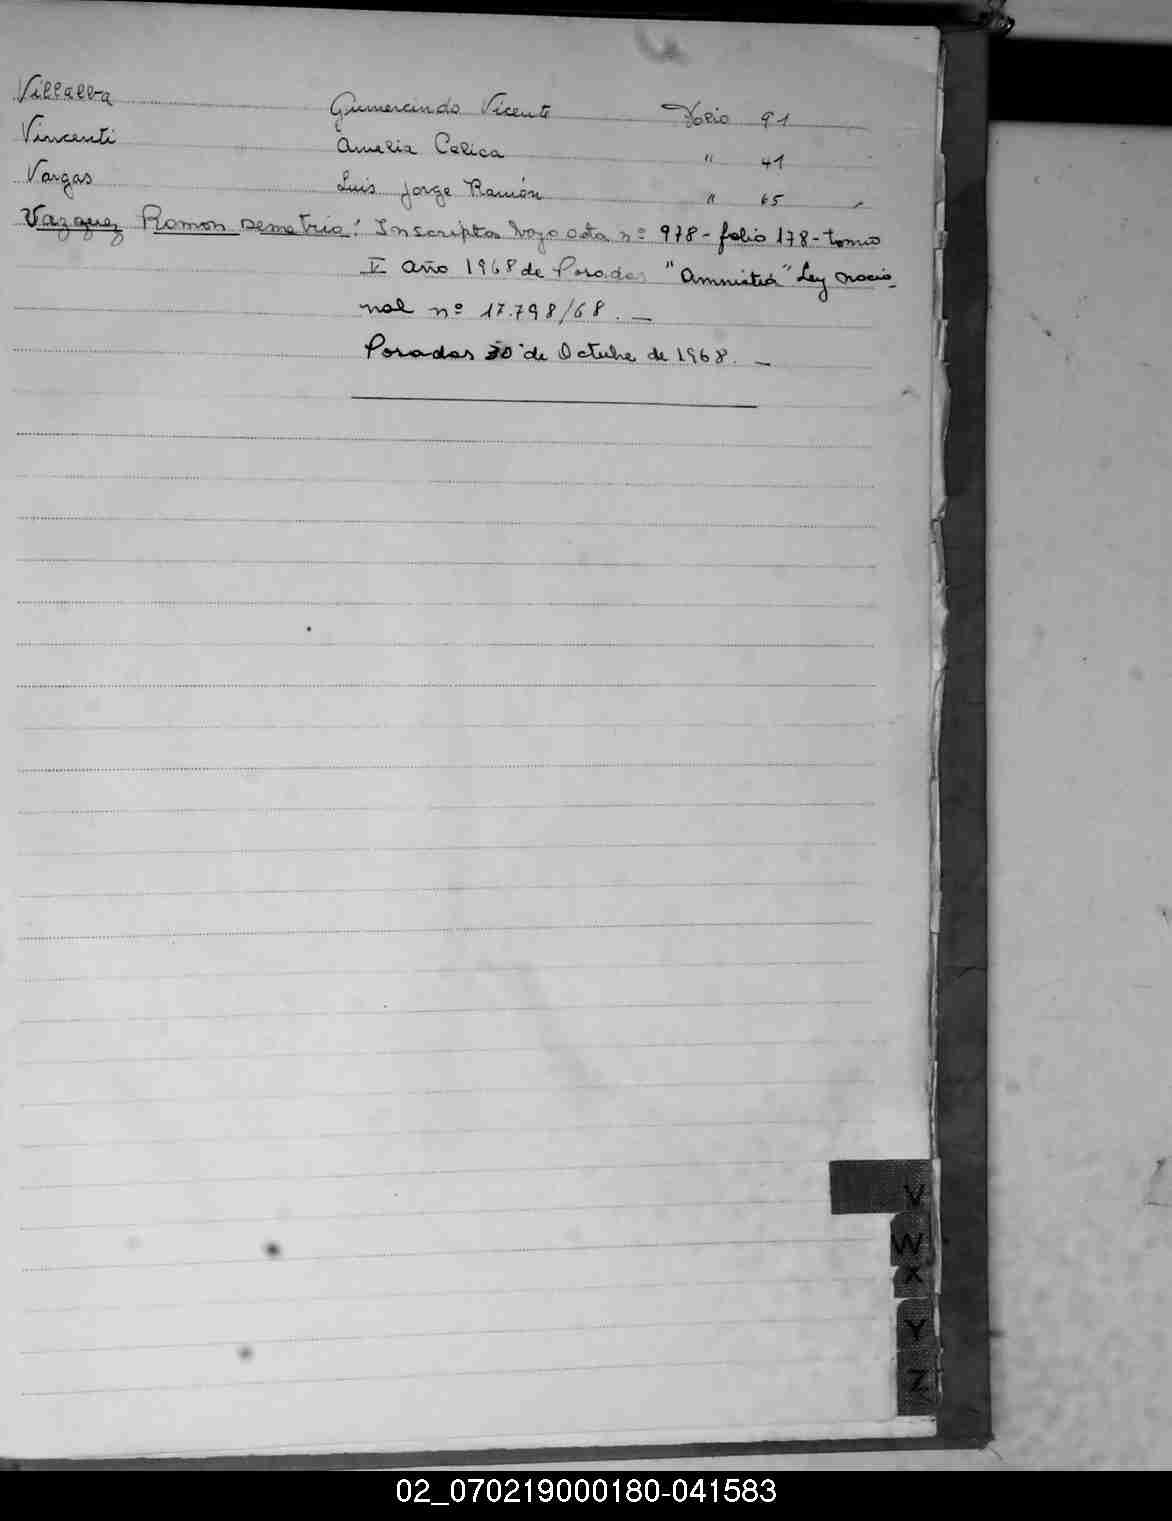 Villalba Gumercindo Vicente Folio 91
Vincenti Amelia Celica " 41
Vargas Luis Jorge Ramón " 65
Vazquez Ramon Demetrio: Inscripto bajo acta nº 978 - folio 178 - tomo
V año 1968 de Posadas "Amnistia" Ley nacio-
nal nº 17.798/68. —
Posadas 30 de Octubre de 1968. —
V
W
X
Y
Z
02_070219000180-041583